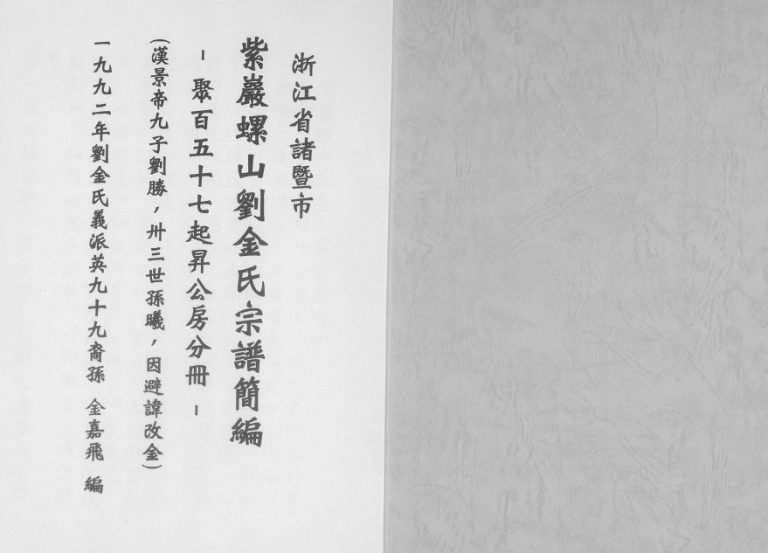 浙江省諸暨市
紫巖螺山劉金氏宗譜簡編
－聚百五十七起昇公房分冊－
(漢景帝九子劉勝，卅三世孫曦，因避諱改金)
一九九二年劉金氏義派英九十九裔孫 金嘉飛 編